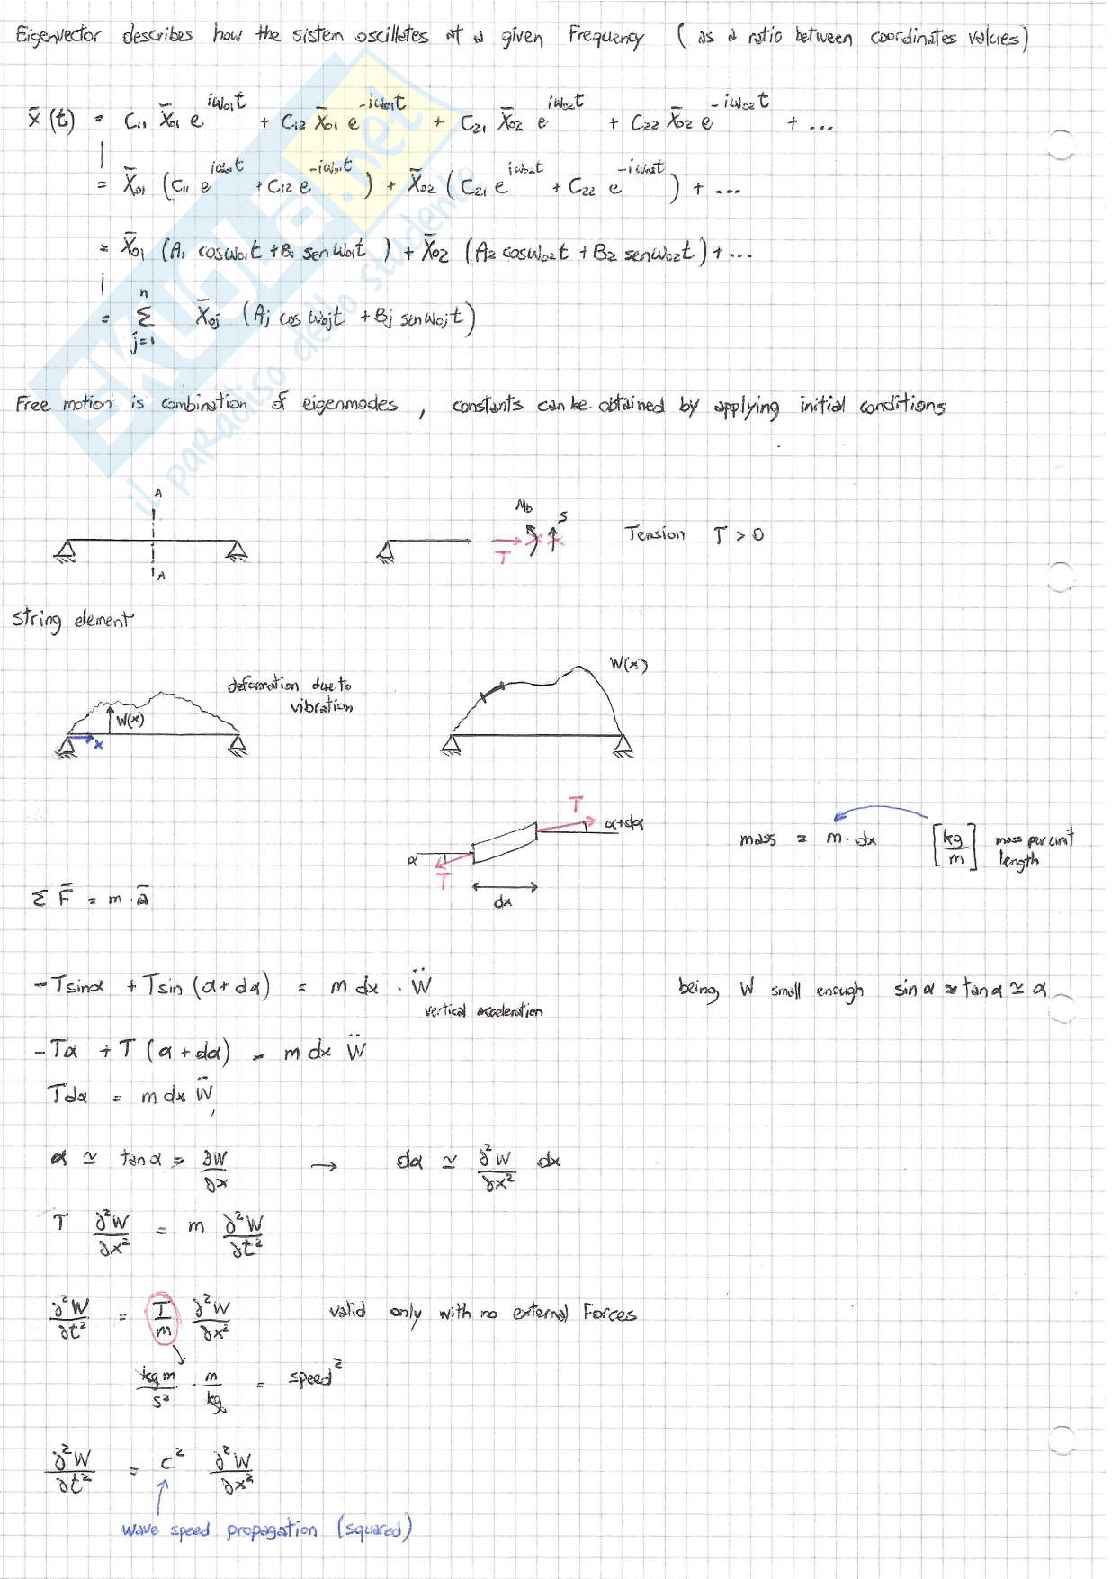 Eigenvector describes how the sistem oscillates at a given frequency (as a ratio between coordinates values)
x̄(t) = C₁₁ X̄₀₁ e^{iω₀₁t} + C₁₂ X̄₀₁ e^{-iω₀₁t} + C₂₁ X̄₀₂ e^{iω₀₂t} + C₂₂ X̄₀₂ e^{-iω₀₂t} + ...
= X̄₀₁ (C₁₁ e^{iω₀₁t} + C₁₂ e^{-iω₀₁t}) + X̄₀₂ (C₂₁ e^{iω₀₂t} + C₂₂ e^{-iω₀₂t}) + ...
= X̄₀₁ (A₁ cosω₀₁t + B₁ senω₀₁t) + X̄₀₂ (A₂ cosω₀₂t + B₂ senω₀₂t) + ...
= Σ_{j=1}^{n} X̄₀ⱼ (Aⱼ cos ω₀ⱼt + Bⱼ senω₀ⱼt)
SKUOLA.net
il paradiso dello studente
Free motion is combination of eigenmodes, constants can be obtained by applying initial conditions
A
A
Mb
S
T
Tension T > 0
string element
deformation due to
vibration
W(x)
x
W(x)
T
α+dα
α
T
dx
mass = m · dx [kg/m] mass per unit
length
Σ F̄ = m · ā
-Tsinα + Tsin(α+dα) = m dx · ẅ
vertical acceleration
being W small enough sinα ≃ tanα ≃ α
-Tα + T(α+dα) = m dx ẅ
Tdα = m dx ẅ
α ≃ tanα = ∂W/∂x → dα ≃ ∂²W/∂x² dx
T ∂²W/∂x² = m ∂²W/∂t²
∂²W/∂t² = T/m ∂²W/∂x² valid only with no external forces
kg m/s² · m/kg = speed²
∂²W/∂t² = c² ∂²W/∂x²
wave speed propagation (squared)